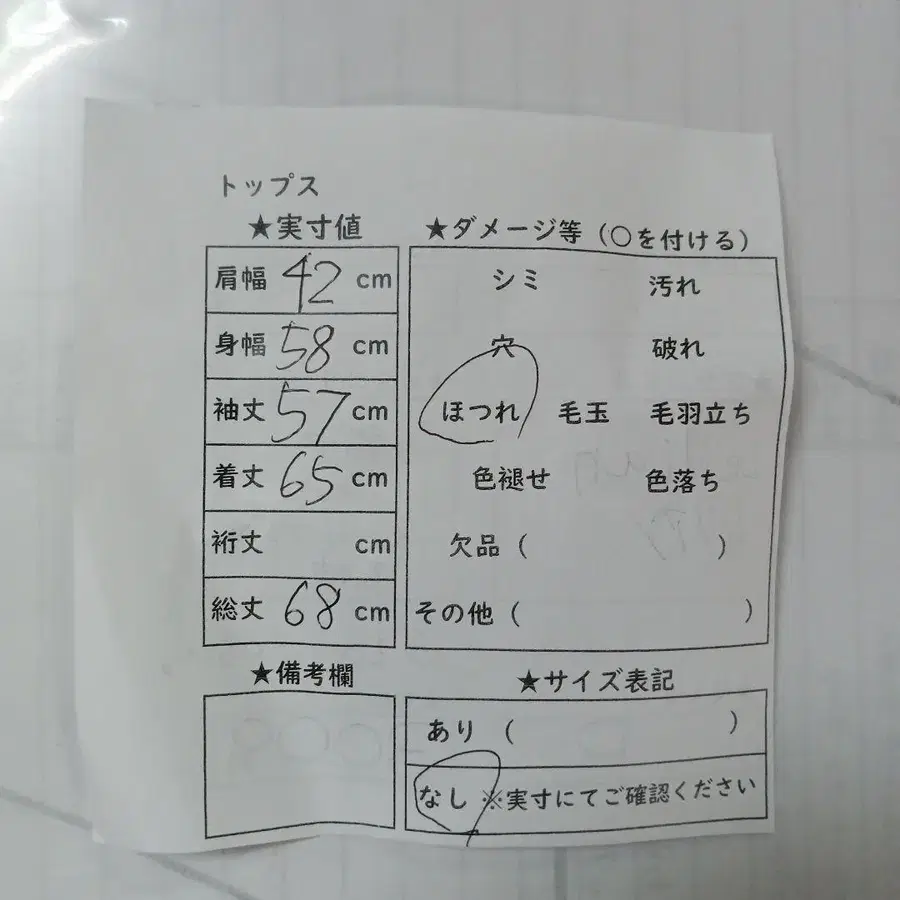 トップス
★実寸値
肩幅 42 cm
身幅 58 cm
袖丈 57 cm
着丈 65 cm
裄丈 cm
総丈 68 cm
★備考欄
★ダメージ等（○を付ける）
シミ 汚れ
穴 破れ
ほつれ 毛玉 毛羽立ち
色褪せ 色落ち
欠品（ ）
その他（ ）
★サイズ表記
あり（ ）
なし ※実寸にてご確認ください